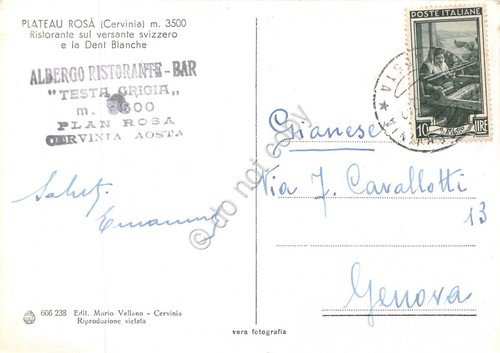 PLATEAU ROSÀ (Cervinia) m. 3500
Ristorante sul versante svizzero
e la Dent Blanche
ALBERGO RISTORANTE - BAR
"TESTA GRIGIA"
m. 3500
PLAN ROSA
CERVINIA AOSTA
Saluti
POSTE ITALIANE
10 LIRE
Gianese
Via F. Cavallotti
13
Genova
do not copy
606.238 Edit. Mario Vellano - Cervinia
Riproduzione vietata
vera fotografia